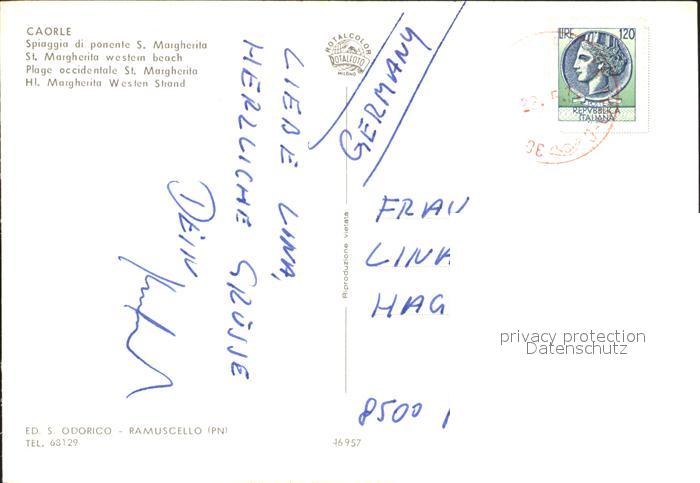 CAORLE
Spiaggia di ponente S. Margherita
St. Margherita western beach
Plage occidentale St. Margherita
Hl. Margherita Westen Strand
ROTALCOLOR
ROTALFOTO
MILANO
LIEBE LINA,
HERZLICHE GRÜSSE
DEIN
GERMANY
LIRE 120
REPVBBLICA
ITALIANA
FRAU
LINA
HAG
8500
Riproduzione vietata
privacy protection
Datenschutz
ED. S. ODORICO - RAMUSCELLO (PN)
TEL. 68129
46957